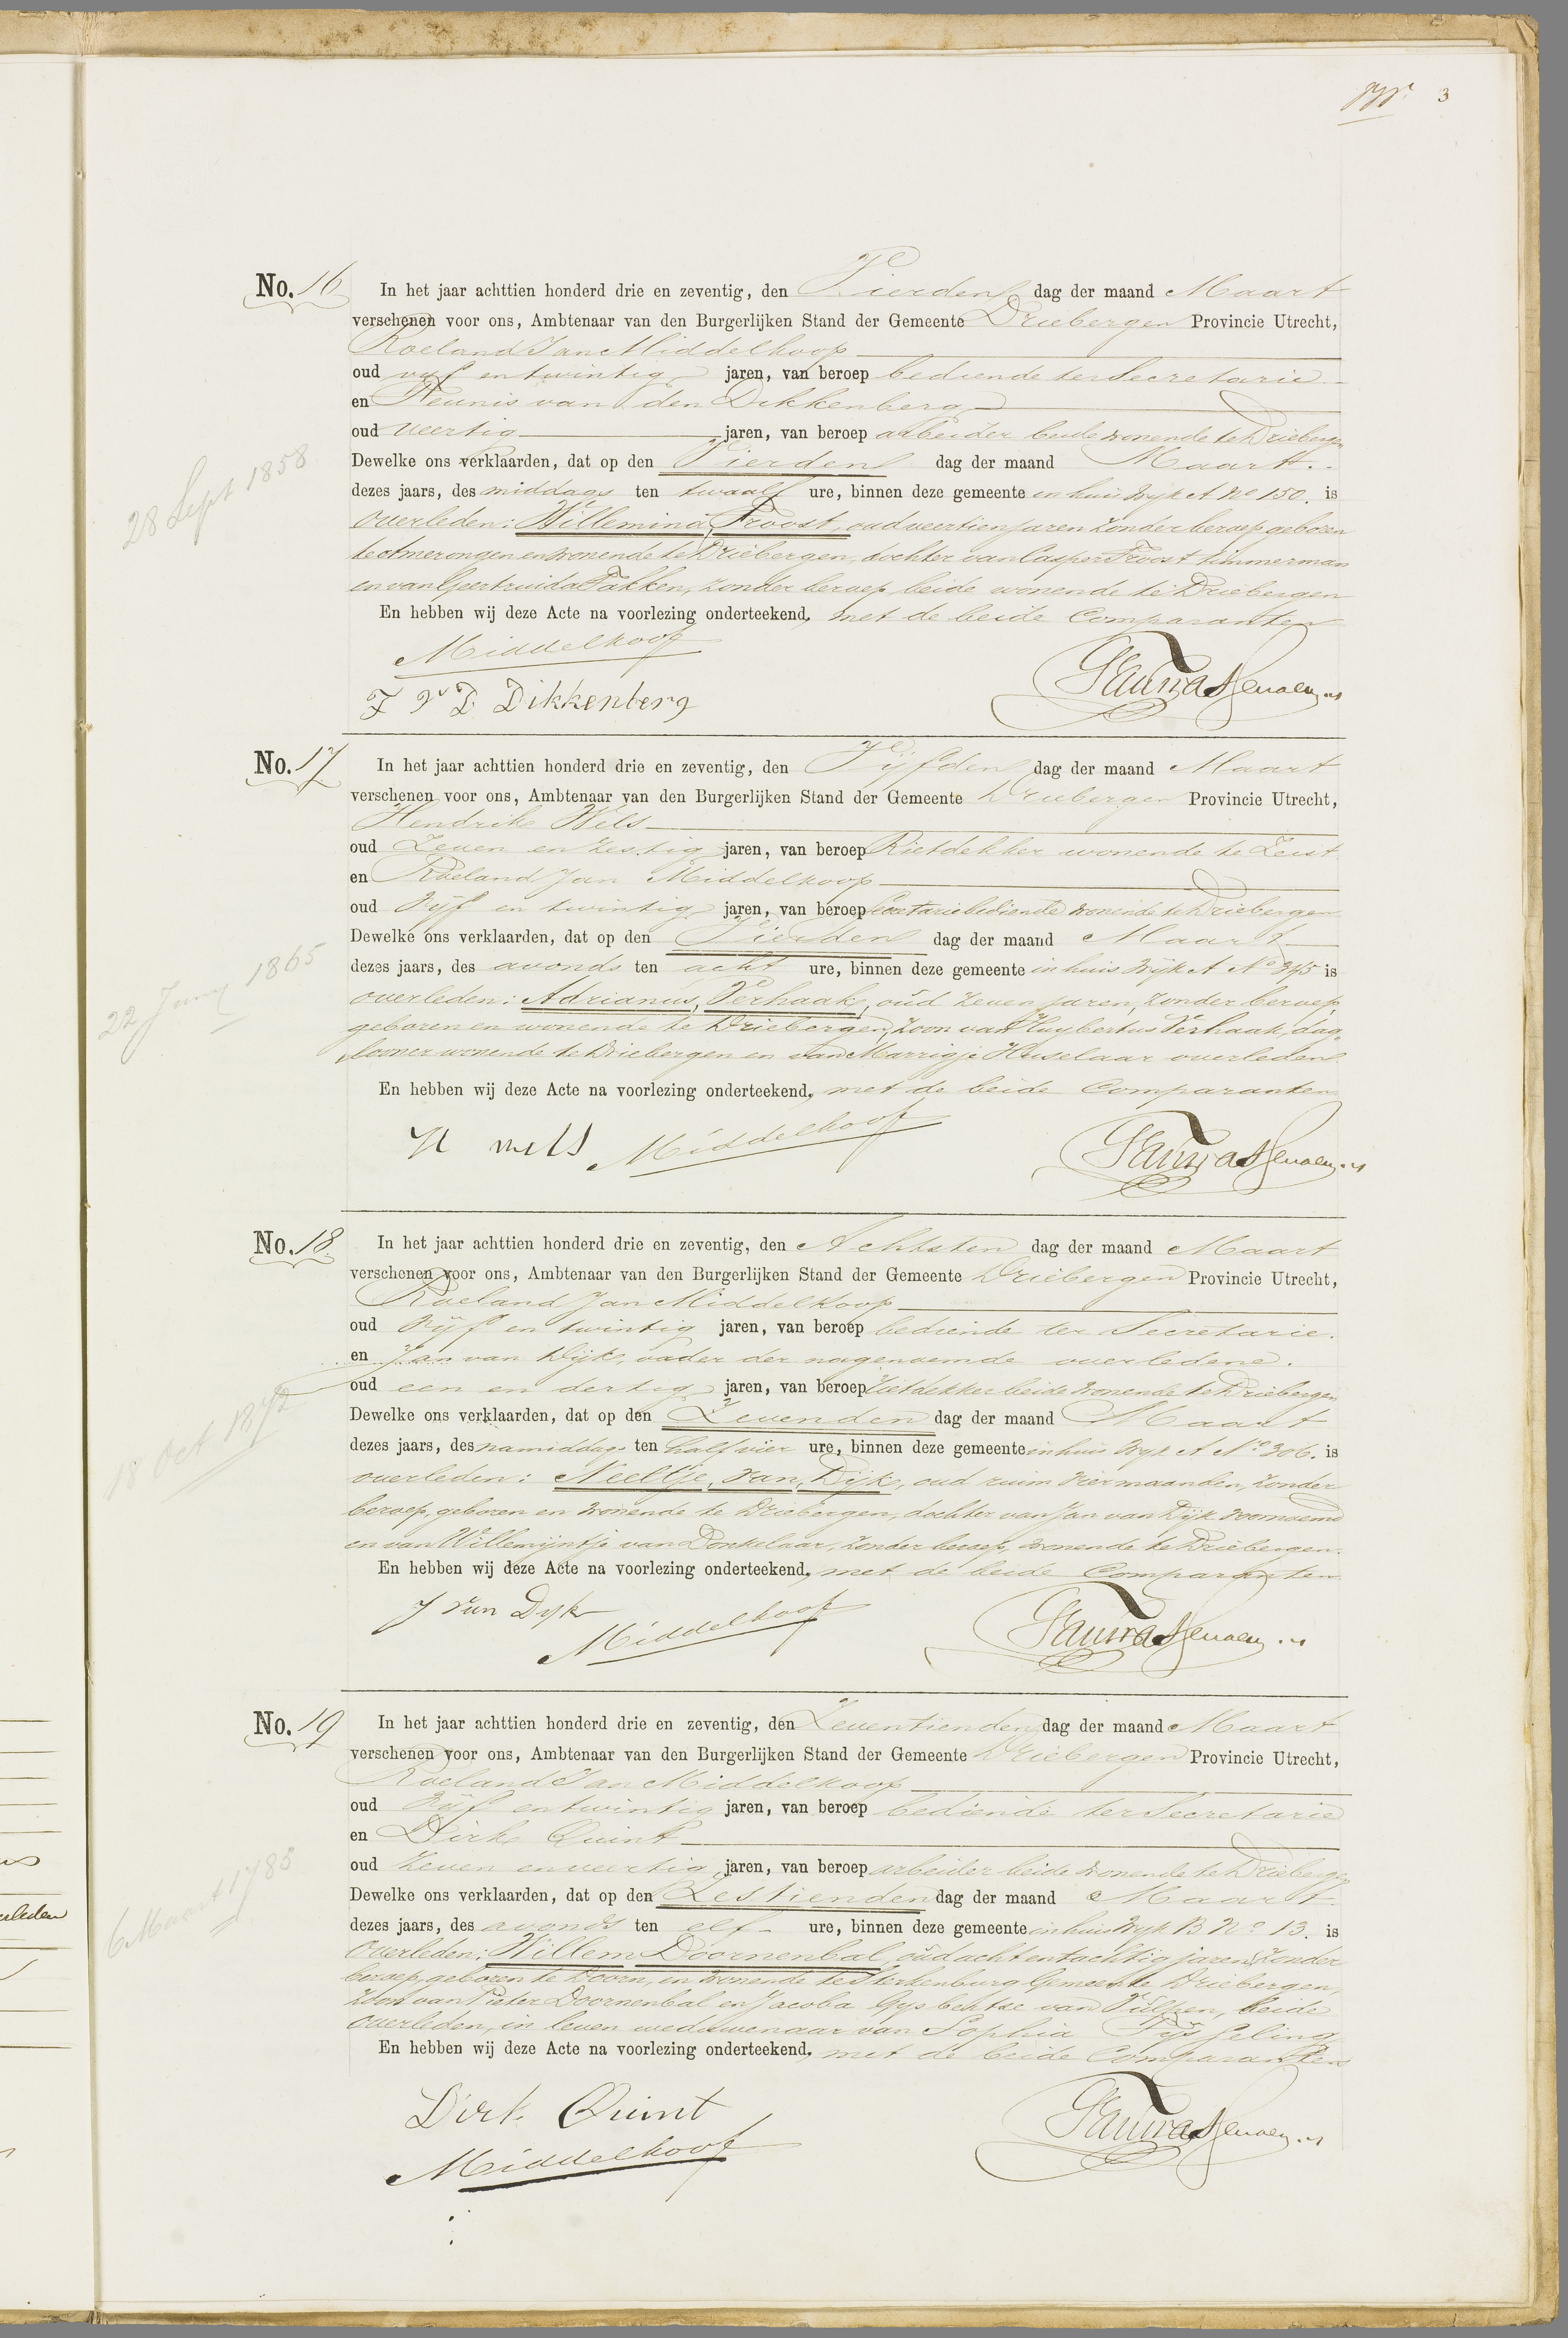 3
No. 16
In het jaar achttien honderd drie en zeventig, den Vierden dag der maand Maart
verschenen voor ons, Ambtenaar van den Burgerlijken Stand der Gemeente Driebergen Provincie Utrecht,
Roeland Jan Middelkoop
oud vijf en twintig jaren, van beroep bediende ter Secretarie
en Teunis van den Dikkenberg
oud veertig jaren, van beroep arbeider beide wonende te Driebergen
28 Sept 1858
Dewelke ons verklaarden, dat op den Vierden dag der maand Maart
dezes jaars, des middags ten twaalf ure, binnen deze gemeente in huis Wijk A No 150. is
overleden: Willemina, Troost, oud veertien jaren zonder beroep geboren
te Amerongen en wonende te Driebergen, dochter van Casper Troost timmerman
en van Geertruida Takken, zonder beroep, beide wonende te Driebergen
En hebben wij deze Acte na voorlezing onderteekend, met de beide Comparanten
Middelkoop
T v D Dikkenberg
No. 17
In het jaar achttien honderd drie en zeventig, den Vijfden dag der maand Maart
verschenen voor ons, Ambtenaar van den Burgerlijken Stand der Gemeente Driebergen Provincie Utrecht,
Hendrik Wels
oud Zeven en zestig jaren, van beroep Rietdekker wonende te Zeist
en Roeland Jan Middelkoop
oud Vijf en twintig jaren, van beroep Secretariebediende wonende te Driebergen
22 Juny 1865
Dewelke ons verklaarden, dat op den Vierden dag der maand Maart
dezes jaars, des avonds ten acht ure, binnen deze gemeente in huis Wijk A No 345 is
overleden: Adrianus, Verhaak, oud zeven jaren, zonder beroep,
geboren en wonende te Driebergen, zoon van Huybertus Verhaak, dag-
looner wonende te Driebergen en van Marrigje Heuselaar overleden.
En hebben wij deze Acte na voorlezing onderteekend, met de beide Comparanten
H wels Middelkoop
No. 18
In het jaar achttien honderd drie en zeventig, den Achtsten dag der maand Maart
verschenen voor ons, Ambtenaar van den Burgerlijken Stand der Gemeente Driebergen Provincie Utrecht,
Roeland Jan Middelkoop
oud Vijf en twintig jaren, van beroep bediende ter Secretarie.
en Jan van Dijk, vader der nagenoemde overledene.
oud een en dertig jaren, van beroep Rietdekker beide wonende te Driebergen
18 Oct 1872
Dewelke ons verklaarden, dat op den Zevenden dag der maand Maart
dezes jaars, des namiddags ten half vier ure, binnen deze gemeente in huis Wijk A No 306. is
overleden: Neeltje, van, Dijk, oud ruim vier maanden, zonder
beroep, geboren en wonende te Driebergen, dochter van Jan van Dijk voornoemd
en van Willemijntje van Donkelaar, zonder beroep, wonende te Driebergen.
En hebben wij deze Acte na voorlezing onderteekend, met de beide Comparanten
J van Dijk
Middelkoop
No. 19
In het jaar achttien honderd drie en zeventig, den Zeventienden dag der maand Maart
verschenen voor ons, Ambtenaar van den Burgerlijken Stand der Gemeente Driebergen Provincie Utrecht,
Roeland Jan Middelkoop
oud Vijf en twintig jaren, van beroep bediende ter Secretarie
en Dirk Quint
oud Zeven en veertig jaren, van beroep arbeider beide wonende te Driebergen
6 Maart 1785
Dewelke ons verklaarden, dat op den Zestienden dag der maand Maart
dezes jaars, des avonds ten elf ure, binnen deze gemeente in huis Wijk B No 13. is
Overleden: Willem Doornenbal, oud acht en tachtig jaren, zonder
beroep, geboren te Doorn, en wonende te Sterkenburg Gemeente Driebergen,
zoon van Pieter Doornenbal en Jacoba Gysbertse van Tulpen, beide
overleden, in leven weduwenaar van Sophia
En hebben wij deze Acte na voorlezing onderteekend, met de beide Comparanten
Dirk Quint
Middelkoop